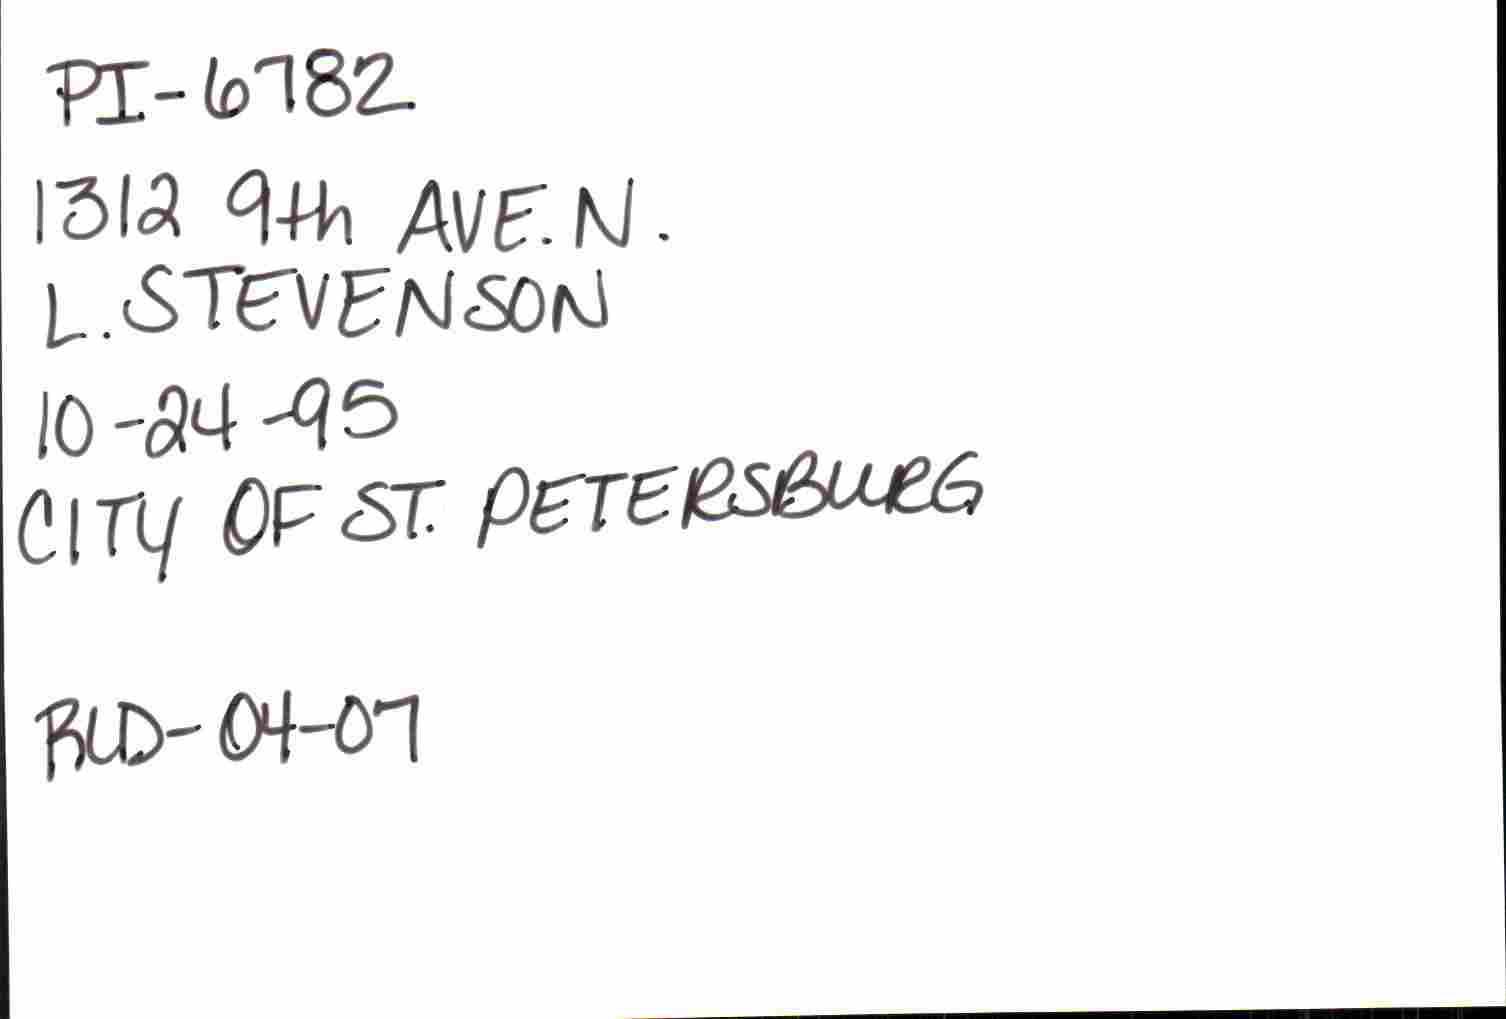 PI-6782
1312 9th AVE. N.
L. STEVENSON
10-24-95
CITY OF ST. PETERSBURG
RLD-04-07